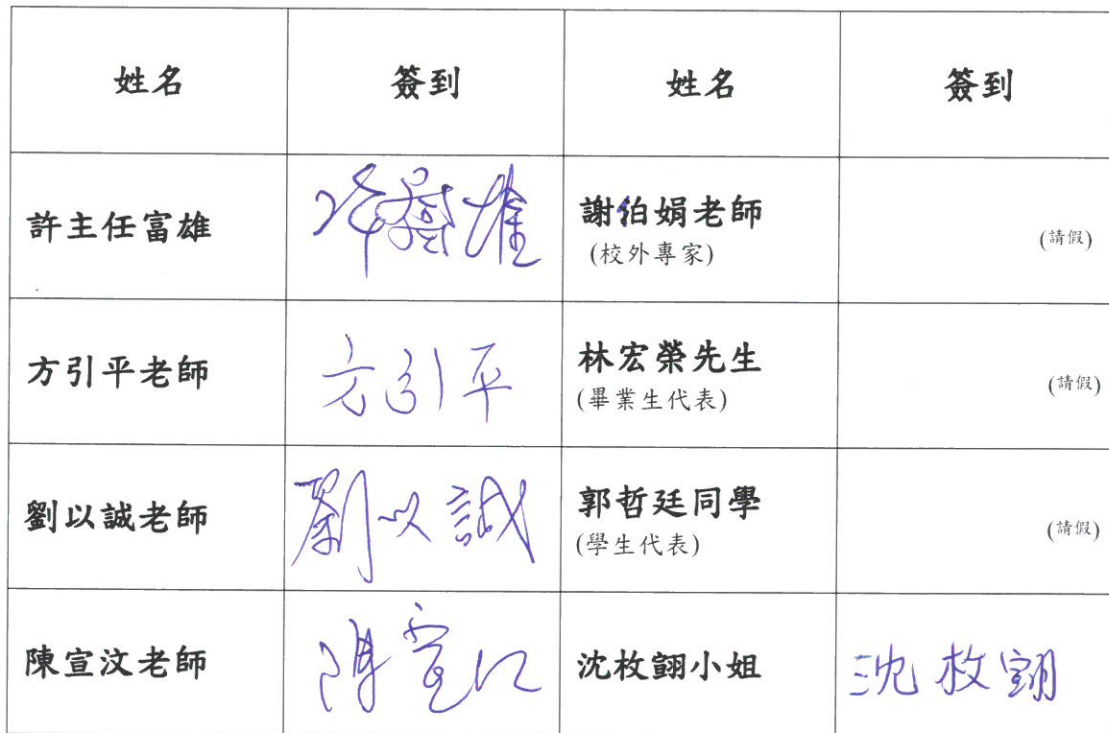 姓名 簽到 姓名 簽到
許主任富雄 許富雄 謝伯娟老師
(校外專家) (請假)
方引平老師 方引平 林宏榮先生
(畢業生代表) (請假)
劉以誠老師 劉以誠 郭哲廷同學
(學生代表) (請假)
陳宣汶老師 陳宣汶 沈枚翧小姐 沈枚翧